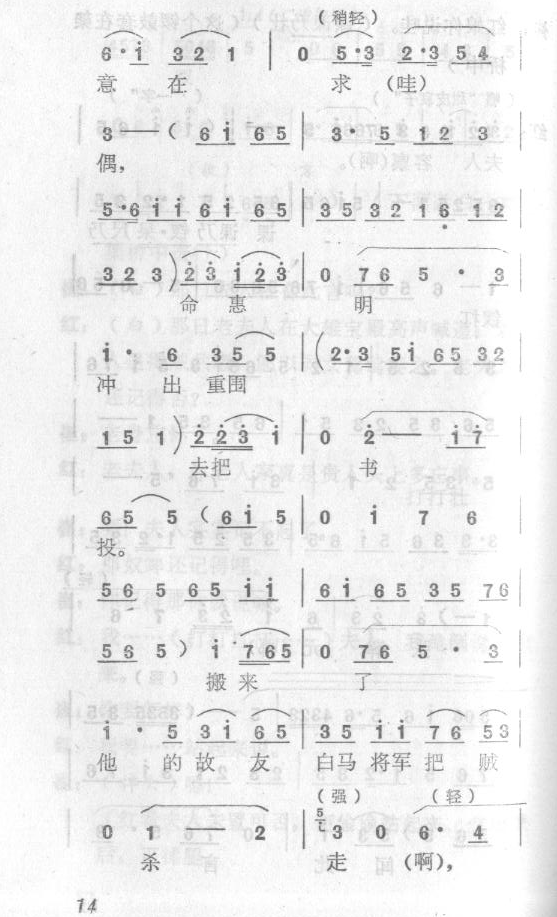 (稍轻)
6·i 32 1 | 0 5·3 2·3 54
意 在 求 (哇)
3 — — ( 6i 65 | 3· 5 12 3
偶,
5·6 i i 6 i 65 | 35 32 16 12
3 2 3 ) 2 3 i 2 3 | 0 76 5 · 3
命 惠 明
i · 6 35 5 | ( 2·3 5i 65 32
冲 出 重围
15 1 ) 2 2 3 i | 0 2 — i7
去把 书
65 5 ( 6 i 5 | 0 i 7 6
投。
56 5 65 i i | 6i 65 35 76
56 5 ) i 765 | 0 76 5 · 3
搬 来 了
i · 5 3i 65 | 35 i i 76 53
他 的 故 友 白马 将军 把 贼
(强) (轻)
0 1 — 2 | 5 3 0 6· 4
杀 走 (啊),
14